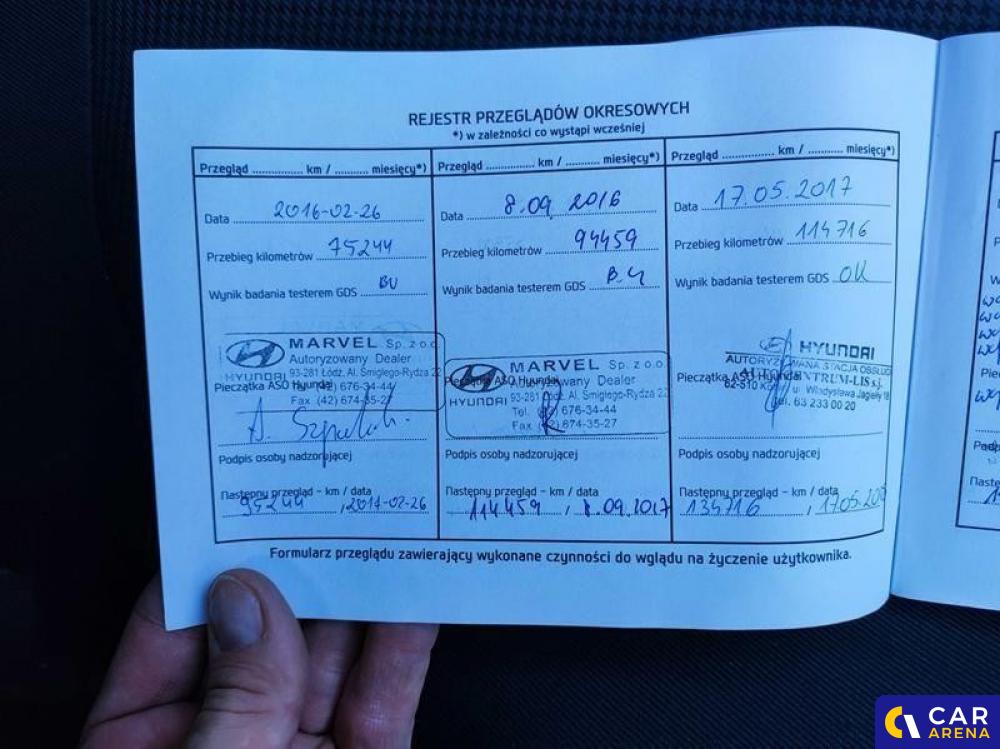 REJESTR PRZEGLĄDÓW OKRESOWYCH
*) w zależności co wystąpi wcześniej
Przegląd ............... km / .......... miesięcy*)
Data 2016-02-26
Przebieg kilometrów 75244
Wynik badania testerem GDS BU
MARVEL Sp. z o.o.
Autoryzowany Dealer
HYUNDAI 93-281 Łódź, Al. Śmigłego-Rydza 22
Pieczątka ASO Hyundai (42) 676-34-44
Fax (42) 674-35-27
Podpis osoby nadzorującej
Następny przegląd – km / data
95244, 2017-02-26
Przegląd ............... km / .......... miesięcy*)
Data 8.09.2016
Przebieg kilometrów 94459
Wynik badania testerem GDS B.U
MARVEL Sp. z o.o.
Pieczątka ASO Hyundai Autoryzowany Dealer
HYUNDAI 93-281 Łódź, Al. Śmigłego-Rydza 22
Tel. (42) 676-34-44
Fax (42) 674-35-27
Podpis osoby nadzorującej
Następny przegląd – km / data
114459, 8.09.2017
Przegląd ............... km / .......... miesięcy*)
Data 17.05.2017
Przebieg kilometrów 114716
Wynik badania testerem GDS OK
HYUNDAI
AUTORYZOWANA STACJA OBSŁUGI
Pieczątka ASO Hyundai AUTO CENTRUM-LIS s.j.
62-510 Konin, ul. Władysława Jagiełły 18
tel. 63 233 00 20
Podpis osoby nadzorującej
Następny przegląd – km / data
134716, 17.05.20
Formularz przeglądu zawierający wykonane czynności do wglądu na życzenie użytkownika.
CAR
ARENA